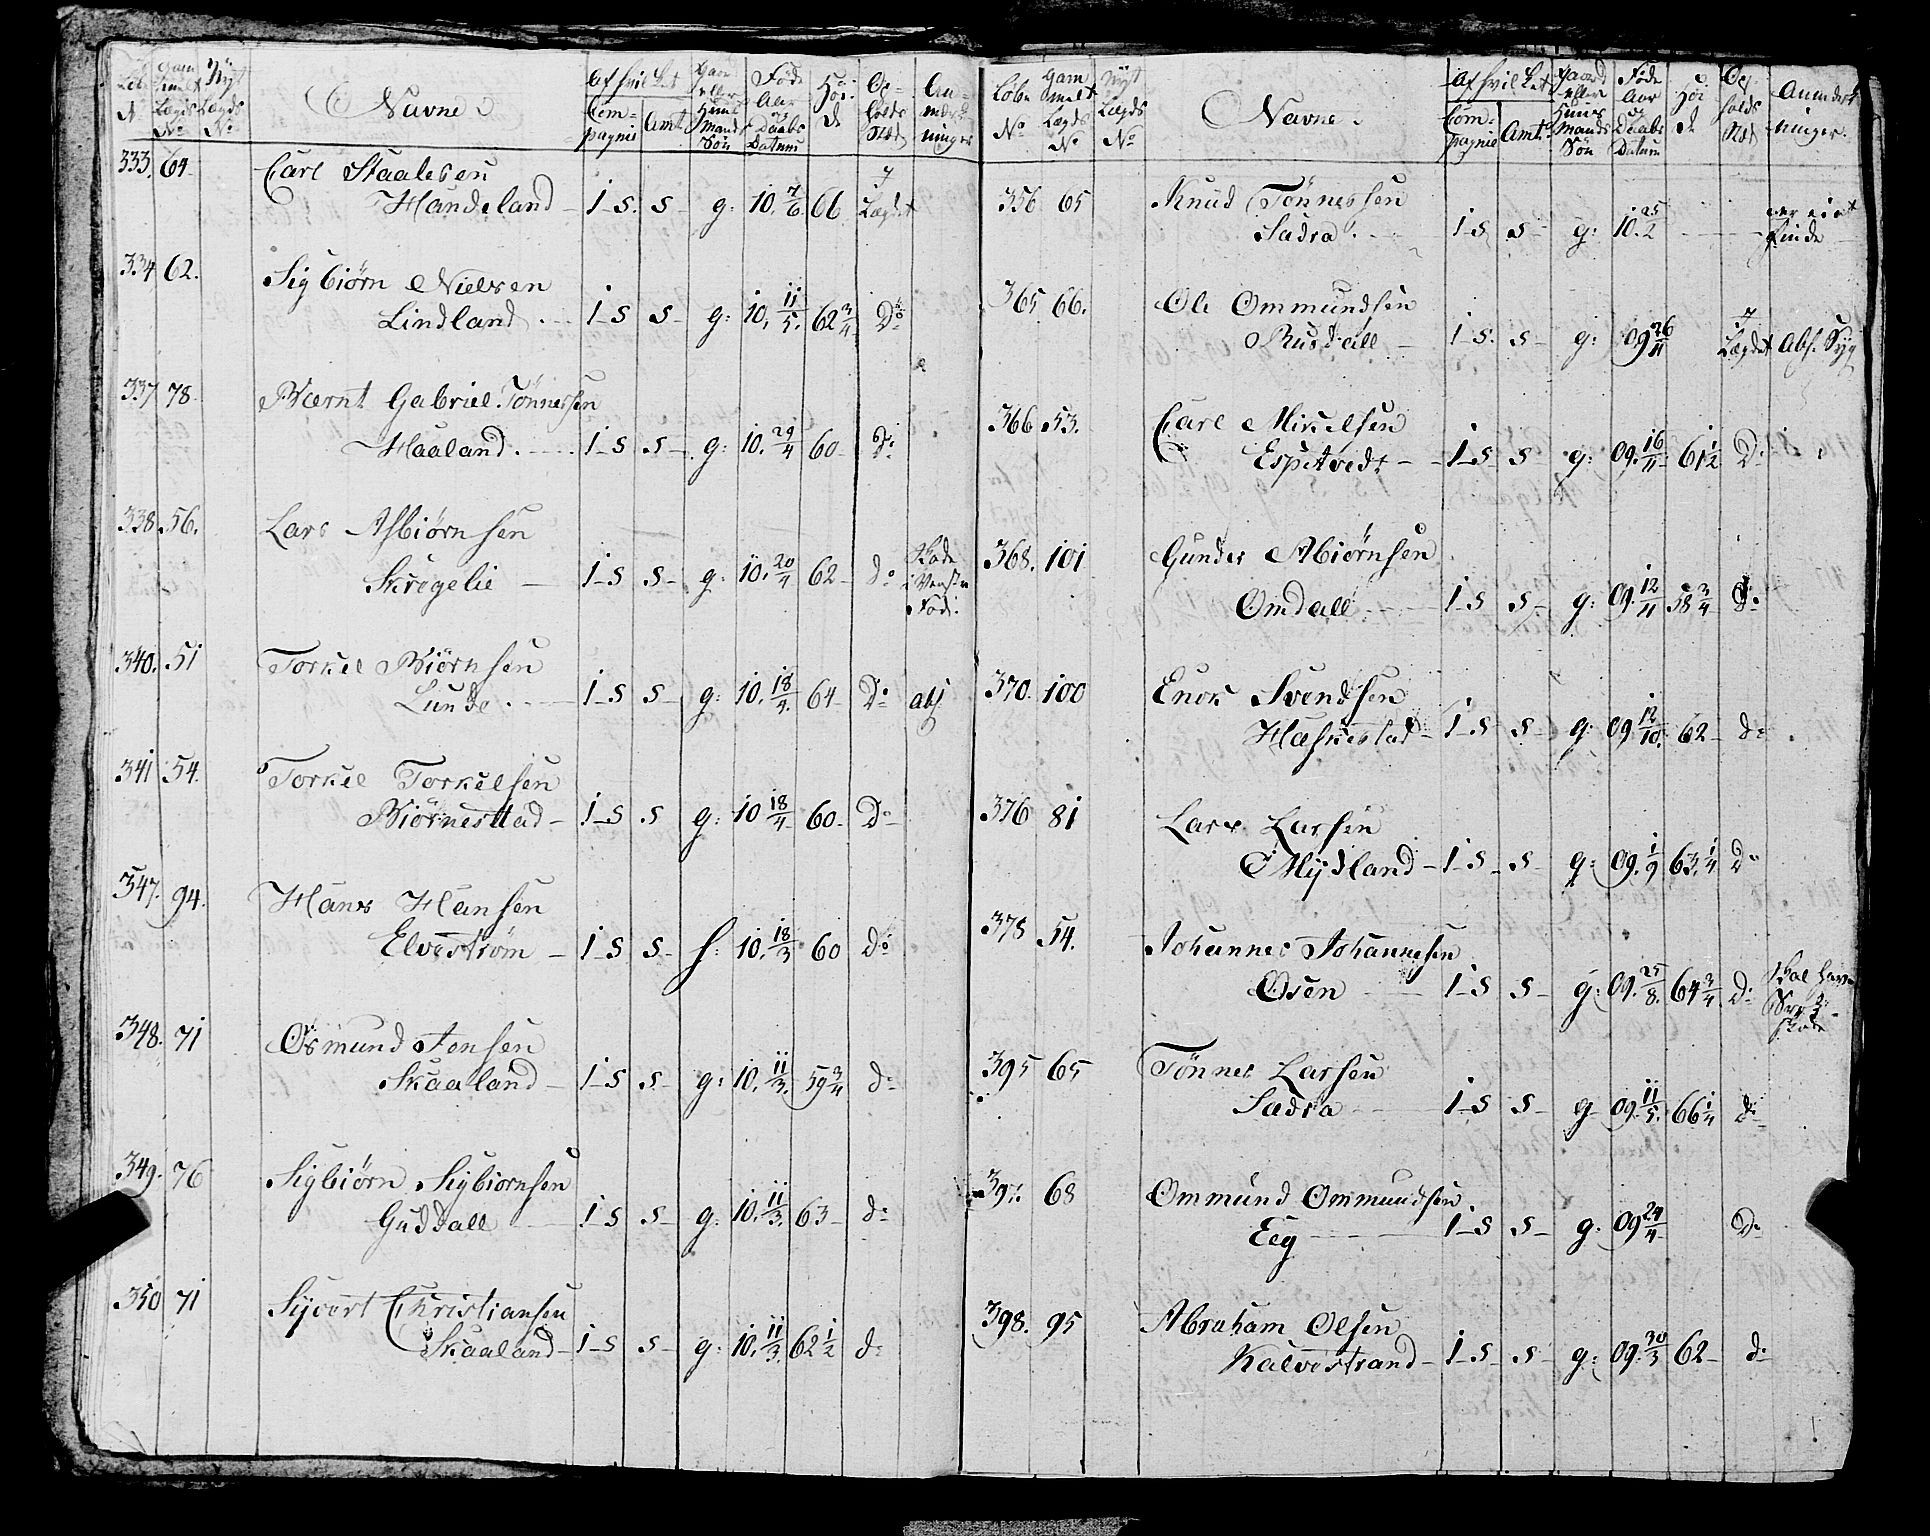 Løbe No Gam melt Lægds No Nÿt Lægds No Navne Af hvilket Com= pagnie Amt Gaard eller Huus Mands Søn Føde Aar og Daabs Datum Høi de Op= holds Sted An= mærk ninger
333. 64 Carl Staalesen
Handeland 1-S. S- g: 10. 7/6 66 i Lægdet
334 62. Sigbiørn Nielsen
Lindland 1-S S- g: 10. 11/5. 62 3/4 Do
337 78. Bernt Gabriel Tönnesen
Haaland 1-S S- g: 10. 29/4 60- do
338. 56. Lars Asbiörnsen
Skregelie 1-S S- g: 10. 20/4 62- do Skade i Venstre Fod.
340. 51 Torkel Biörnsen
Lunde 1-S S- g: 10. 18/4. 64- Do abs.
341 54. Torkel Torkelsen
Biörnestad 1-S S g: 10 18/4 60- Do
347. 94. Hans Hansen
Elvestrøm 1-S S- h: 10. 18/3 60 do
348. 71 Osmund Jensen
Skaaland 1-S S- g: 10. 11/3. 59 3/4 do
349. 76 Sigbiörn Sigbiørnsen
Guddall 1-S S- g: 10. 11/3. 63- do
350 71 Sÿvert Christiansen
Skaaland 1-S S- g: 10. 11/3. 62 1/2 do
Løbe No Gam melt Lægds No Nÿt Lægds No Navne Af hvilket Com= pagnie Amt Gaard eller Huus Mands Søn Føde Aar og Daabs Datum Høi de Op holds Sted Anmærk ninger.
356 65 Knud Tønnessen
Sadra 1-S S- g: 10. 25/2 er ei at finde
365 66. Ole Ommundsen
Rusdall 1-S. S- g: 09 26/11 i Lægdet abs. Syg
366 53. Carl Mikelsen
Espetvedt 1-S S g: 09. 16/11 61 1/2 Do
368. 101 Gunder Abiørnsen
Omdall 1-S S- g: 09. 12/11 58 3/4 do
370. 100 Enok Svendsen
Hæskestad 1-S S- g: 09 12/10. 62- do
376 81 Lars Larsen
Mÿdland 1-S S g: 09. 1/9 63 1/4 do
378 54. Johannes Johannesen
Osen 1-S S- g: 09. 25/8. 64 3/4 do skal have
395 65 Tønnes Larsen
Sadra 1-S S- g 09. 11/5. 66 1/4 do
397. 68 Ommund Ommundsen
Eeg 1-S S- g: 09 24/4 Do
398. 95 Abraham Olsen
Kalvestrand 1-S S- g: 09. 30/3 62- do